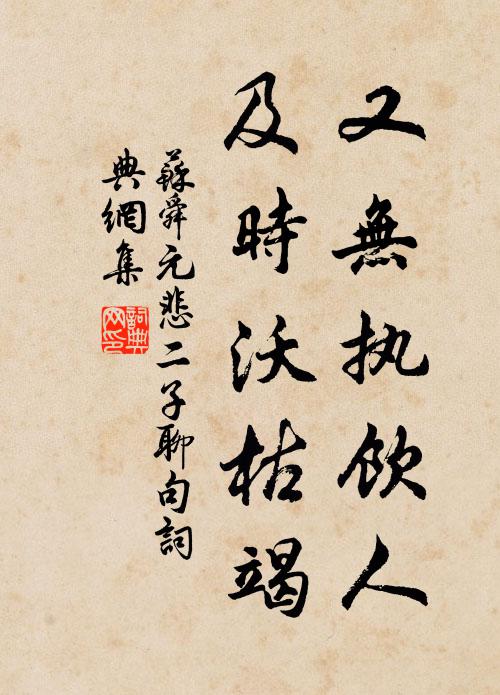 又無执饮人
及時沃枯竭
蘇舜元悲二子聊句詞
典網集
詞典网印